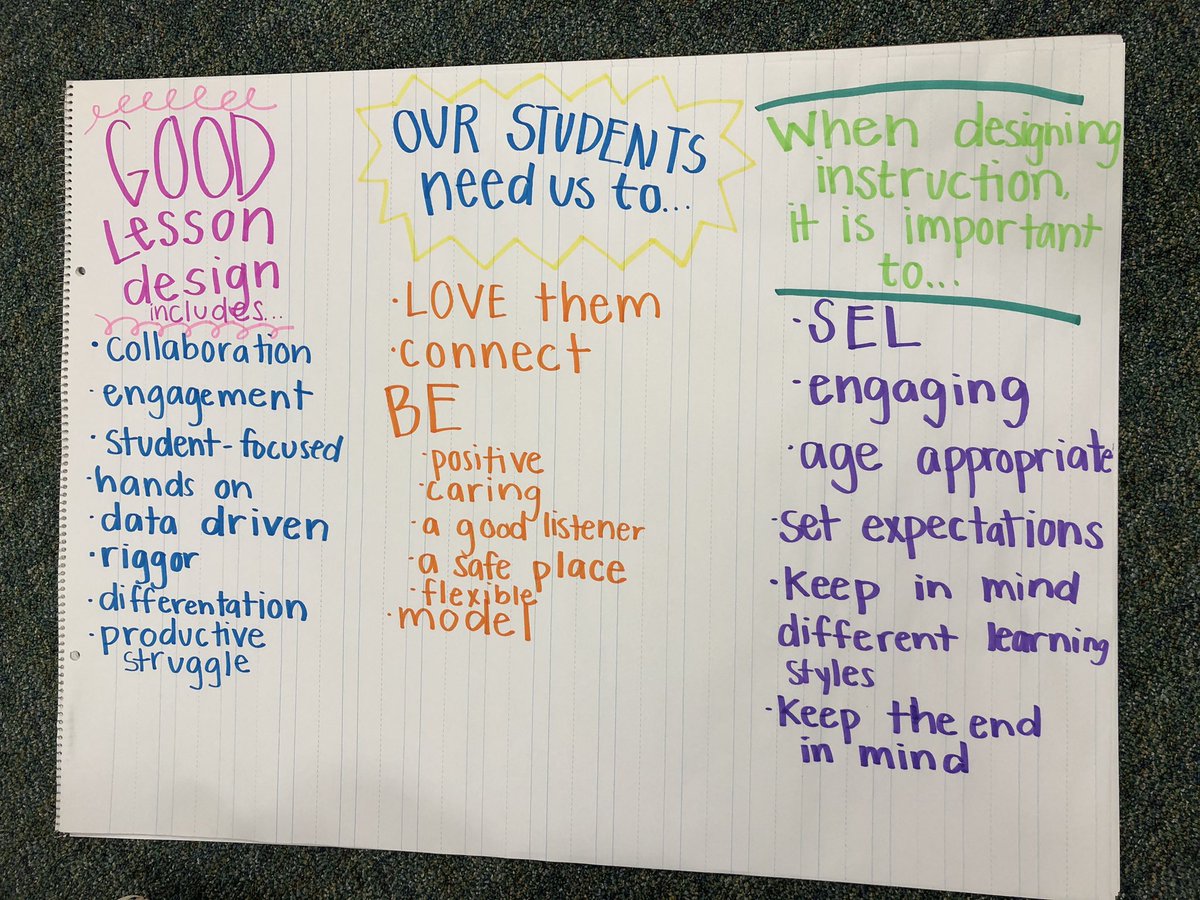 GOOD
Lesson
design
includes...
· collaboration
· engagement
· student-focused
· hands on
· data driven
· riggor
· differentation
· productive
struggle
OUR STUDENTS
need us to...
· LOVE them
· connect
BE
· positive
· caring
· a good listener
· a safe place
· flexible
· model
When designing
instruction,
it is important
to...
· SEL
· engaging
· age appropriate
· set expectations
· Keep in mind
different learning
styles
· Keep the end
in mind